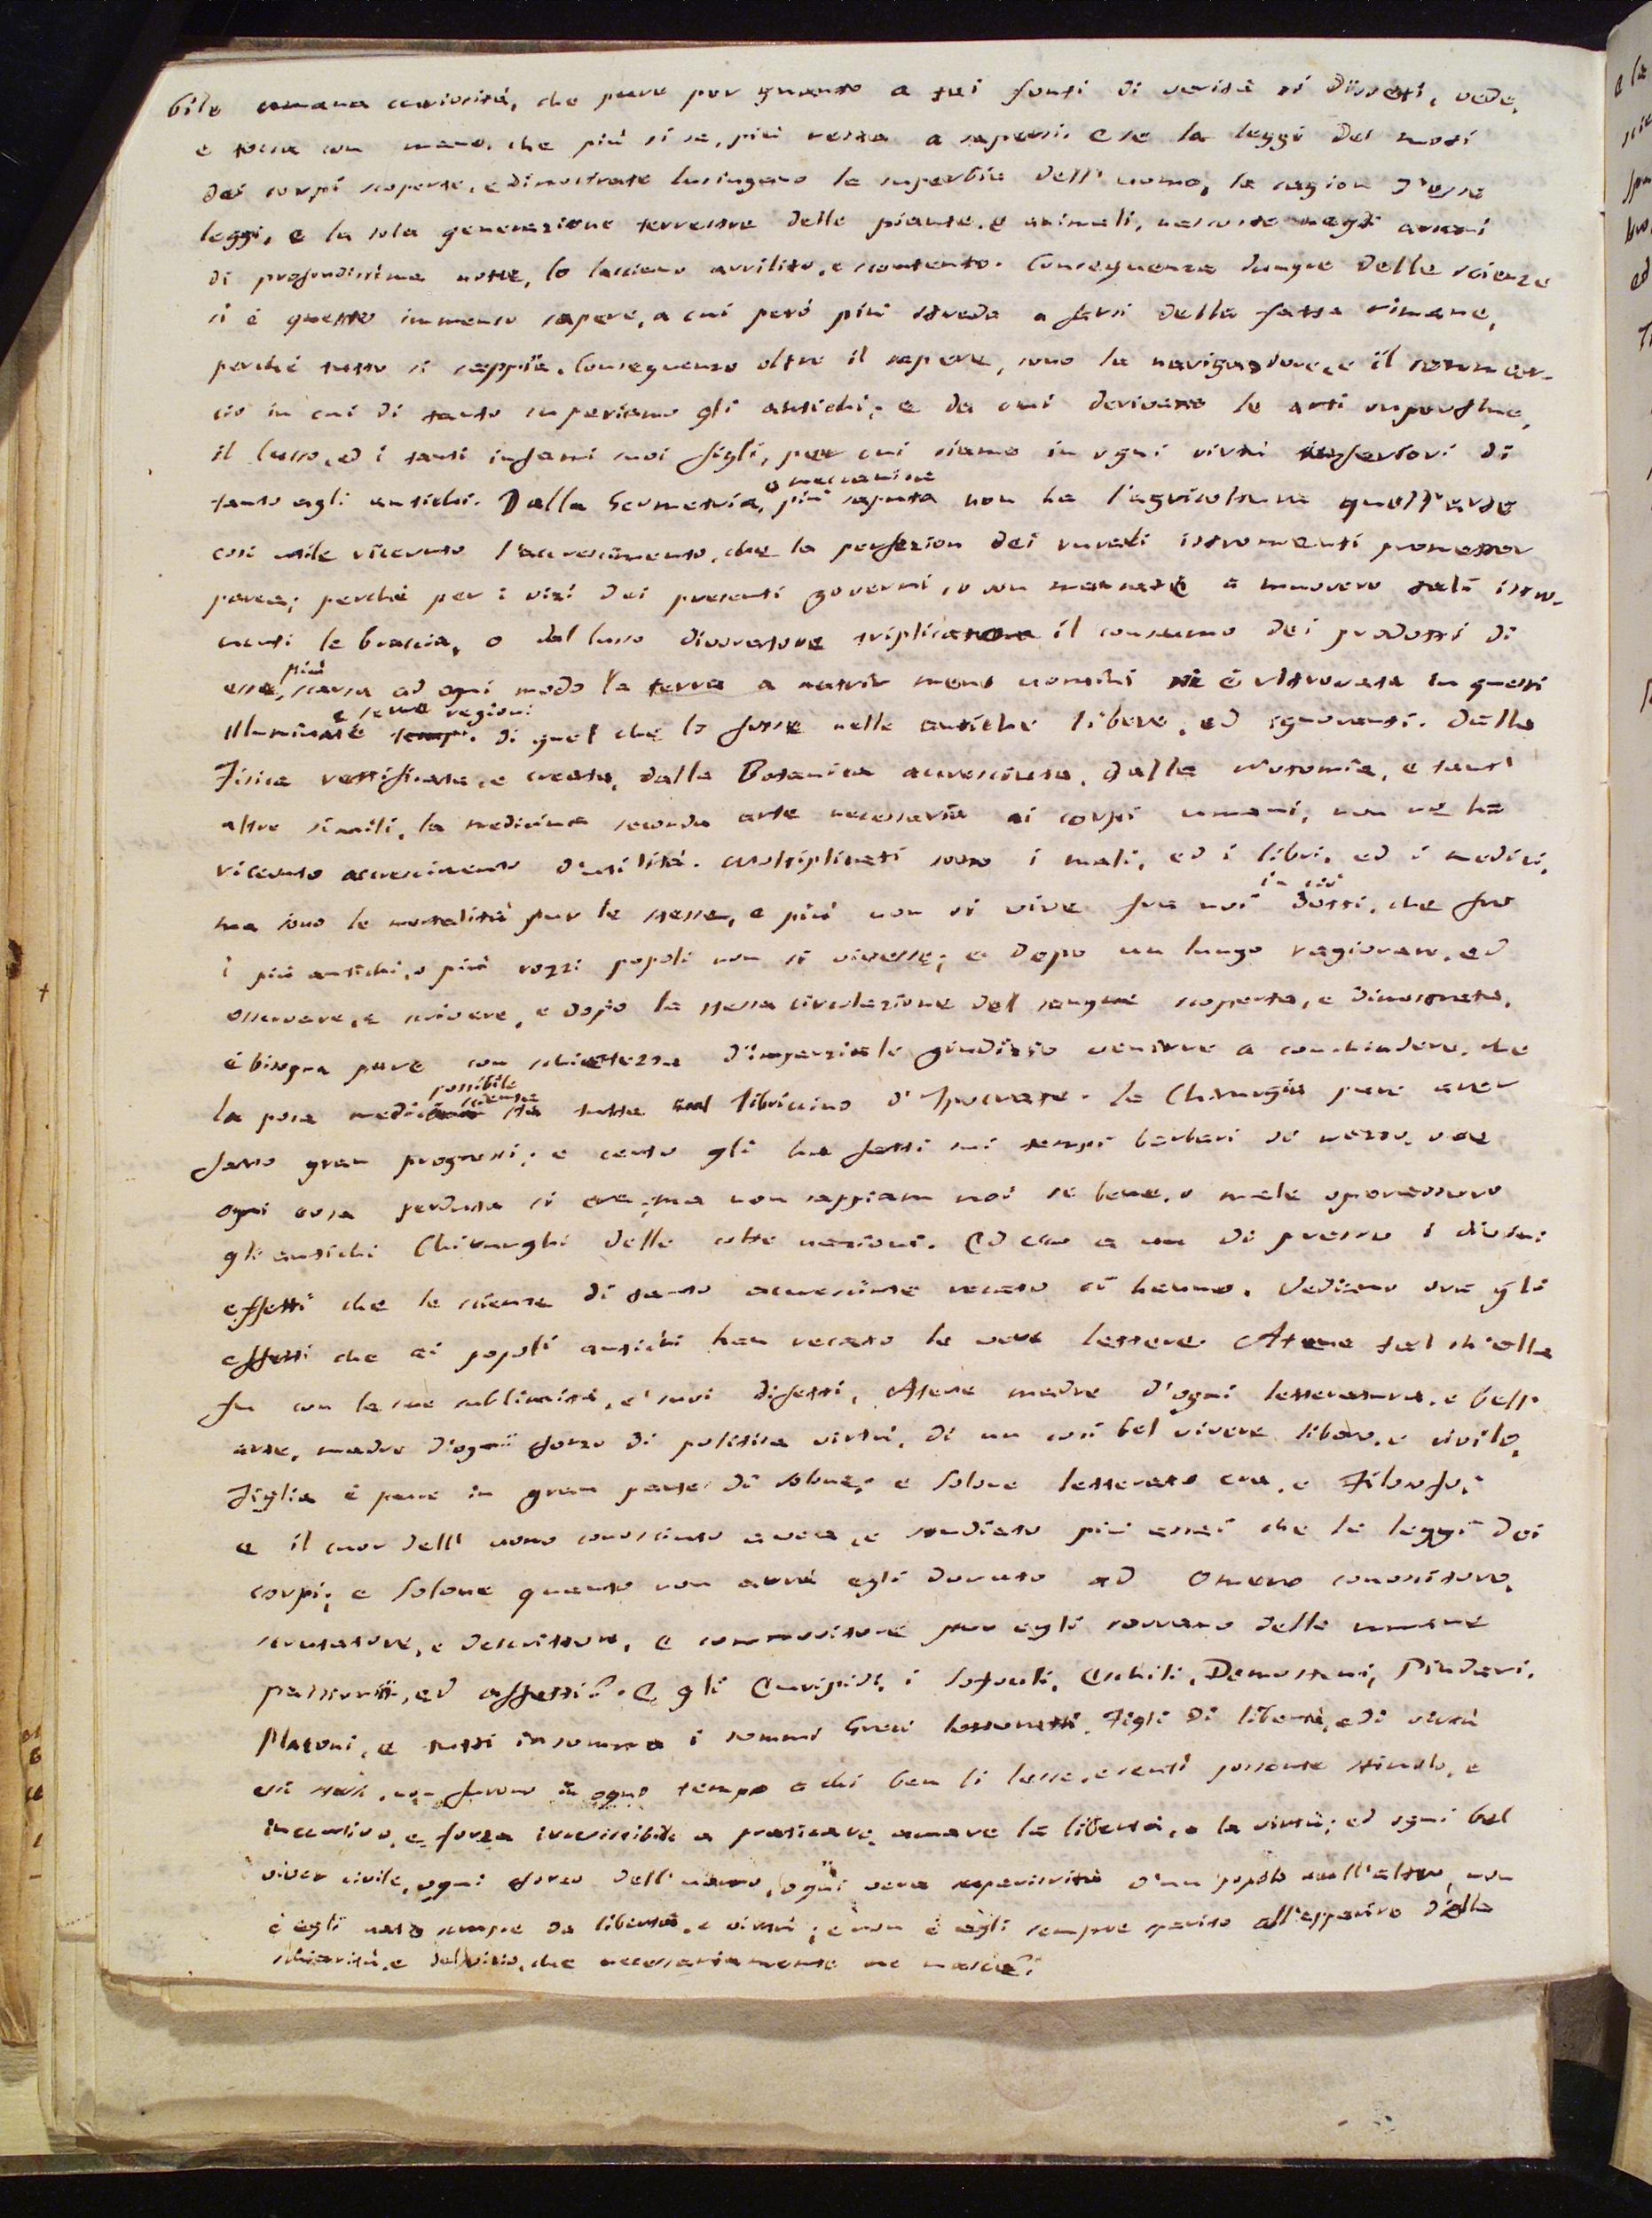 bile umana curiosità, che pure per quanto a tai fonti di verità si disseti, vede,
e tocca con mano, che più si sa, più resta a sapersi. E se la leggi del moti
dei corpi scoperte, e dimostrate lusingano la superbia dell'uomo, la cagion d'esse
leggi, e la sola generazione terrestre delle piante, e animali, nascoste negli arcani
di profondissima notte, lo lasciano avvilito, e scontento. Conseguenza dunque delle scienze
si è questo immenso sapere, a cui però più strada a farsi della fatta rimane,
perché tutto si sappia. Conseguenza oltre il sapere, sono la navigazione, e il commer-
cio in cui di tanto superiamo gli antichi; e da cui derivano le arti superflue,
il lusso, ed i tanti infami suoi figli, per cui siamo in ogni virtù inferiori di
o meccanica
tanto agli antichi. Dalla Geometria, più saputa non ha l'agricoltura quell'arte
così utile ricevuto l'accrescimento, che la perfezion dei rurali istromenti prometter
parea; perché per i vizi dei presenti governi, o son mancate a muovere tali istro-
menti le braccia, o dal lusso divoratore triplicatone il consumo dei prodotti di
più
esse, scarsa ad ogni modo la terra a nutrir meno uomini si è ritrovata in questi
e serve regioni
illuminate tempi. di quel che lo fosse nelle antiche libere, ed ignoranti. Dalla
Fisica rettificata, e creata, dalla Botanica accresciuta, dalla Notomia, e tant'
altre simili, la medicina seconda arte necessaria ai corpi umani, non ne ha
ricevuto accrescimento d'utilità. Moltiplicati sono i mali, ed i libri, ed i medici,
in ciò
ma sono le mortalità pur le stesse, e più non si vive fra noi dotti, che fra
i più antichi, o più rozzi popoli non si vivesse; e dopo un lungo ragionare, ed
osservare, e scrivere, e dopo la stessa circolazione del sangue scoperta, e dimostrata,
è bisogna pure con schiettezza d'imparziale giudizio venirne a conchiudere, che
possibile
scienza
la poca medicina sta tutta nel libriccino d'Ipocrate. La Chirurgia pare aver
fatto gran progressi; e certo gli ha fatti sui tempi barbari di mezzo, ove
ogni cosa perduta si era; ma non sappiam noi se bene, o male operassero
gli antichi Chirurghi delle colte nazioni. Ed ecco a un di presso i diversi
effetti che le scienze di tanto accresciute recato ci hanno. Vediamo ora gli
effetti che ai popoli antichi han recato le vere lettere. Atene tal ch'ella
fu con la sue sublimità, e' suoi difetti, Atene madre d'ogni letteratura, e bell'
arte, madre d'ogni sforzo di politica virtù, di un così bel vivere libero, e civile,
Figlia è pure in gran parte di Solone; e Solone letterato era, e Filosofo;
e il cuor dell'uomo conosciuto aveva, e studiato più assai che le leggi dei
corpi; e Solone quanto non avrà egli dovuto ad Omero conoscitore,
scrutatore, e descrittore, e commovitore pur egli sovrano delle umane
passioni, ed affetti? E gli Euripidi, i Sofocli, Eschili, Demosteni, Pindari,
Platoni, e tutti in somma i sommi Greci letterati, Figli di libertà, e di virtù
essi stessi, non furono in ogni tempo a chi ben li lesse, e sentì possente stimolo, e
incentivo, e forza irresistibile a praticare, amare la libertà, e la virtù; ed ogni bel
viver civile, ogni sforzo dell'uomo, ogni vera superiorità d'un popolo sull'altro, non
è egli nato sempre da libertà, e virtù; e non è egli sempre sparito all'apparire della
schiavitù, e del vizio, che necessariamente ne nasce?